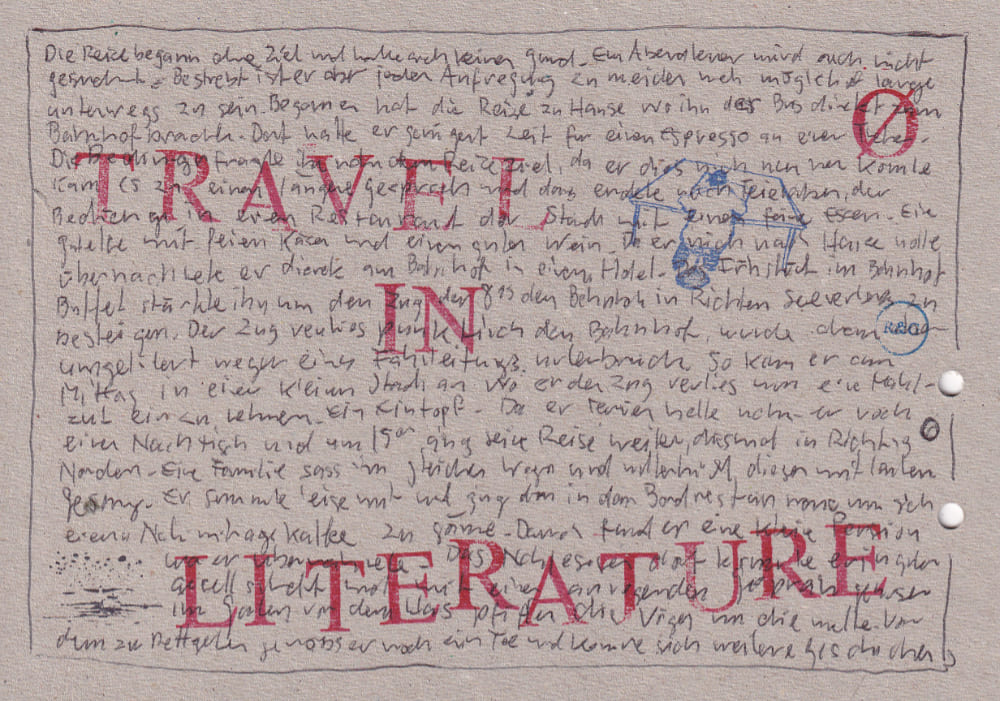 Die Reise begann ohne Ziel und hatte auch keinen grund. Ein Abenteuer wird auch nicht
gesucht. Bestrebt ist er aber jeden Aufregung zu meiden möglichst lange
unterwegs zu sein. Begonnen hat die Reise zu Hause wo ihn der Bus direkt zum
Bahnhof brachte. Dort hatte er genügent Zeit für einen Espresso an einer
Ø
Die Bedienung fragte ihn nach dem Reiseziel, da er dies nicht nennen konte
TRAVEL
kam es zu einem langen gespräch und das endete nach Feierabend der
Bedienung in einem Restaurant der Stadt mit einem feine Essen. Eine
mit feinen Käse und einem guten Wein. Da er nicht nach Hause wollte
übernachtete er direkt am Bahnhof in einem Hotel. Das Frühstück im Bahnhof
Buffet stärkte ihn um den Zug der 8 15 den Bahnhof in Richtung zu
IN
besteigen. Der Zug verlies pünktlich den Bahnhof, wurde dann aber
REG
umgeleitet wegen eines Fahrleitungs unterbruch. So kam er am
Mittag in einer kleinen Stadt an wo er den Zug verlies um eine Mahl-
zeit ein zu nehmen. Ein Eintopf. Da er Ferien hatte nahm er noch
einen Nachtisch und um 15 00 ging seine Reise weiter, diesmal in Richtung
Norden. Eine Familie sass im gleichen Wagen und unterhielt diesen mit lautem
gesang. Er summte leise mit und ging dan in dem Bordrestaurant um sich
einen Nachmittags Kaffee zu gönne. Danach fand er eine kleine Pension
wo er übernachtete. Das Nachtessen dort in
LITERATURE
gesellschaft mit einem anregenden gespräch
im Garten vor dem Haus pfiffen die Vögel um die wette. Vor
dem zu Bettgehen genoss er noch ein Tee und konnte sich weitere geschichten